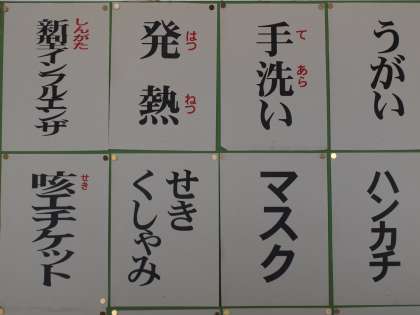 うがい
手洗い
て あら
発熱
はつ ねつ
新型インフルエンザ
しんがた
ハンカチ
マスク
せき
くしゃみ
咳エチケット
せき